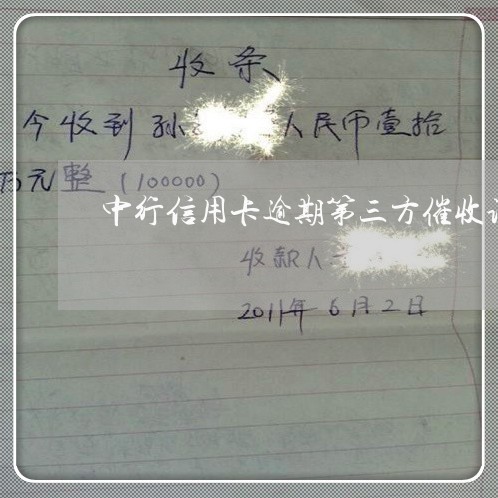 收条
今收到孙 人民币壹拾
万元整(100000)
中行信用卡逾期第三方催收
收款人
2011年6月2日